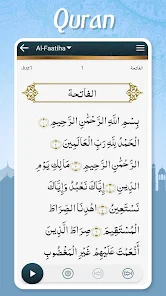 Quran
Al-Faatiha
Juz 1
الفاتحة
الفاتحة
بِسْمِ اللَّهِ الرَّحْمَٰنِ الرَّحِيمِ ۝ ١
الْحَمْدُ لِلَّهِ رَبِّ الْعَالَمِينَ ۝ ٢
الرَّحْمَٰنِ الرَّحِيمِ ۝ ٣ مَالِكِ يَوْمِ
الدِّينِ ۝ ٤ إِيَّاكَ نَعْبُدُ وَإِيَّاكَ
نَسْتَعِينُ ۝ ٥ اهْدِنَا الصِّرَاطَ
الْمُسْتَقِيمَ ۝ ٦ صِرَاطَ الَّذِينَ
أَنْعَمْتَ عَلَيْهِمْ غَيْرِ الْمَغْضُوبِ